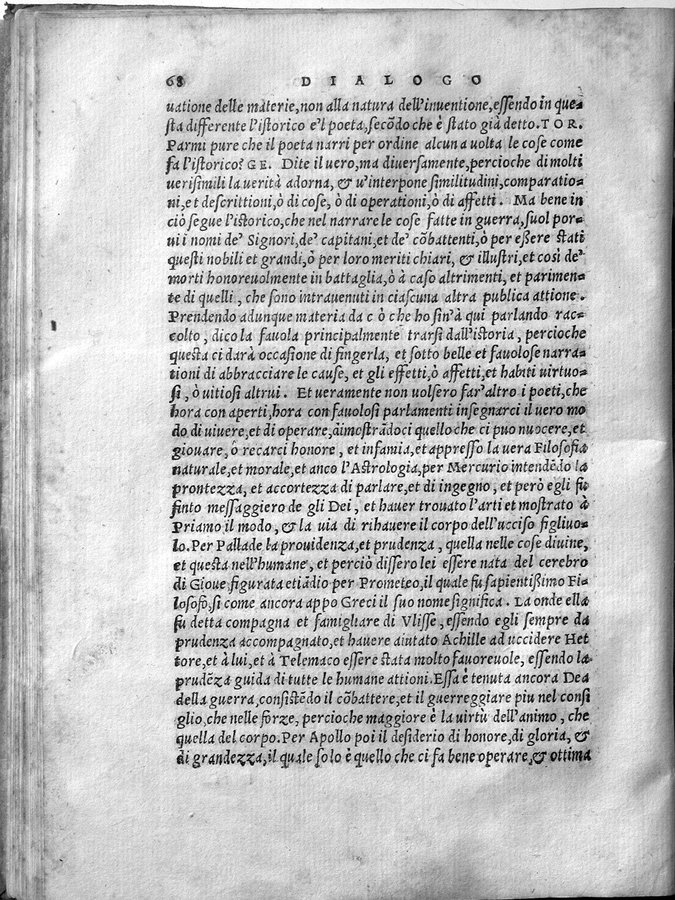 68 DIALOGO
uatione delle materie, non alla natura dell'inuentione, essendo in que-
sta differente l'istorico e'l poeta, secõdo che è stato già detto. TOR.
Parmi pure che il poeta narri per ordine alcuna uolta le cose come
fa l'istorico? GE. Dite il uero, ma diuersamente, percioche di molti
uerisimili la verità adorna, & u'interpone similitudini, comparatio-
ni, et descrittioni, ò di cose, ò di operationi, ò di affetti. Ma bene in
ciò segue l'istorico, che nel narrare le cose fatte in guerra, suol por-
ui i nomi de' Signori, de' capitani, et de' cõbattenti, ò per eßere stati
questi nobili et grandi, ò per loro meriti chiari, & illustri, et così de'
morti honoreuolmente in battaglia, ò à caso altrimenti, et parimen-
te di quelli, che sono intrauenuti in ciascuna altra publica attione.
Prendendo adunque materia da c ò che ho sin'à qui parlando rac-
colto, dico la fauola principalmente trarsi dall'istoria, percioche
questa ci darà occasione di fingerla, et sotto belle et fauolose narra-
tioni di abbracciare le cause, et gli effetti, ò affetti, et habiti uirtuo-
si, ò uitiosi altrui. Et ueramente non uolsero far'altro i poeti, che
hora con aperti, hora con fauolosi parlamenti insegnarci il uero mo
do di uiuere, et di operare, dimostrãdoci quello che ci puo nuocere, et
giouare, ò recarci honore, et infamia, et appresso la uera Filosofia
naturale, et morale, et anco l'Astrologia, per Mercurio intendẽdo la
prontezza, et accortezza di parlare, et di ingegno, et però egli fù
finto messaggiero de gli Dei, et hauer trouato l'arti et mostrato à
Priamo il modo, & la uia di rihauere il corpo dell'ucciso figliuo-
lo. Per Pallade la prouidenza, et prudenza, quella nelle cose diuine,
et questa nell'humane, et perciò dissero lei essere nata del cerebro
di Gioue figurata etiãdio per Prometeo, il quale fu sapientißimo Fi-
losofo, si come ancora appo Greci il suo nome significa. La onde ella
fù detta compagna et famigliare di Vlisse, essendo egli sempre da
prudenza accompagnato, et hauere aiutato Achille ad uccidere Het
tore, et à lui, et à Telemaco essere stata molto fauoreuole, essendo la
prudẽza guida di tutte le humane attioni. Essa è tenuta ancora Dea
della guerra, consistẽdo il cõbattere, et il guerreggiare piu nel consi
glio, che nelle forze, percioche maggiore è la uirtù dell'animo, che
quella del corpo. Per Apollo poi il desiderio di honore, di gloria, &
di grandezza, il quale solo è quello che ci fa bene operare, & ottima